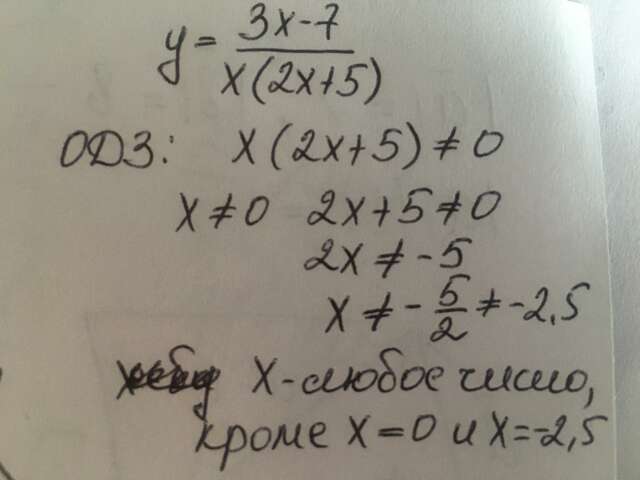 y = (3x-7)/(x(2x+5))
ОДЗ: x(2x+5) ≠ 0
x ≠ 0 2x+5 ≠ 0
2x ≠ -5
x ≠ -5/2 ≠ -2,5
x-любое число,
кроме x=0 и x=-2,5